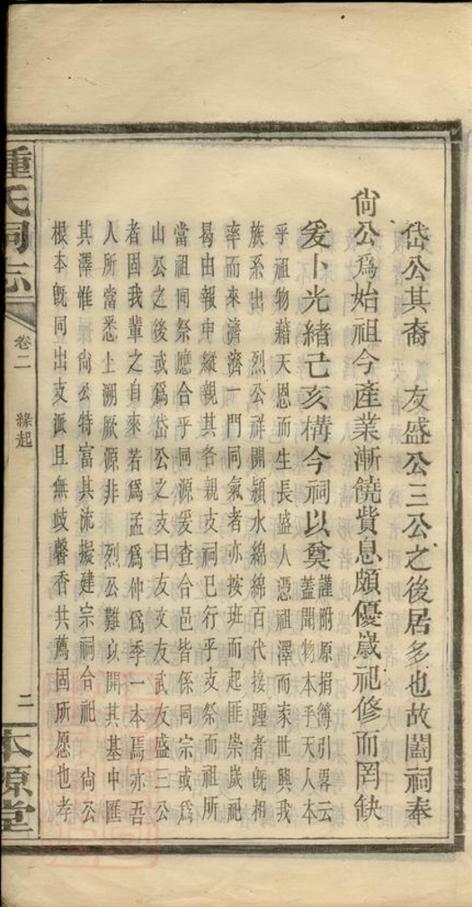 岱公其裔　友盛公三公之後居多也故闔祠奉
尙公爲始祖今產業漸饒貲息頗優歲祀修而罔缺
爰卜光緒己亥構今祠以奠
謹附原捐簿引畧云
蓋聞物本乎天人本
乎祖物藉天恩而生長盛人憑祖澤而家世興我
族系出　烈公祥開潁水綿綿百代接踵者旣相
率而來濟濟一門同氣者亦按班而起匪崇歲祀
曷由報申縱觀其各親支祠已行乎支祭而祖所
當祖同祭應合乎同源爰查合邑皆係同宗或爲
山公之後或爲岱公之支曰友文友武友盛三公
者因我輩之自來若爲孟爲仲爲季一本焉亦吾
人所當悉上溯厥源非　烈公難以開其基中匯
其澤惟　尙公特富其流擬建宗祠合祀　尙公
根本旣同出支派且無歧馨香共薦固所愿也孝
鍾氏祠志
卷二　緣起
二
本源堂